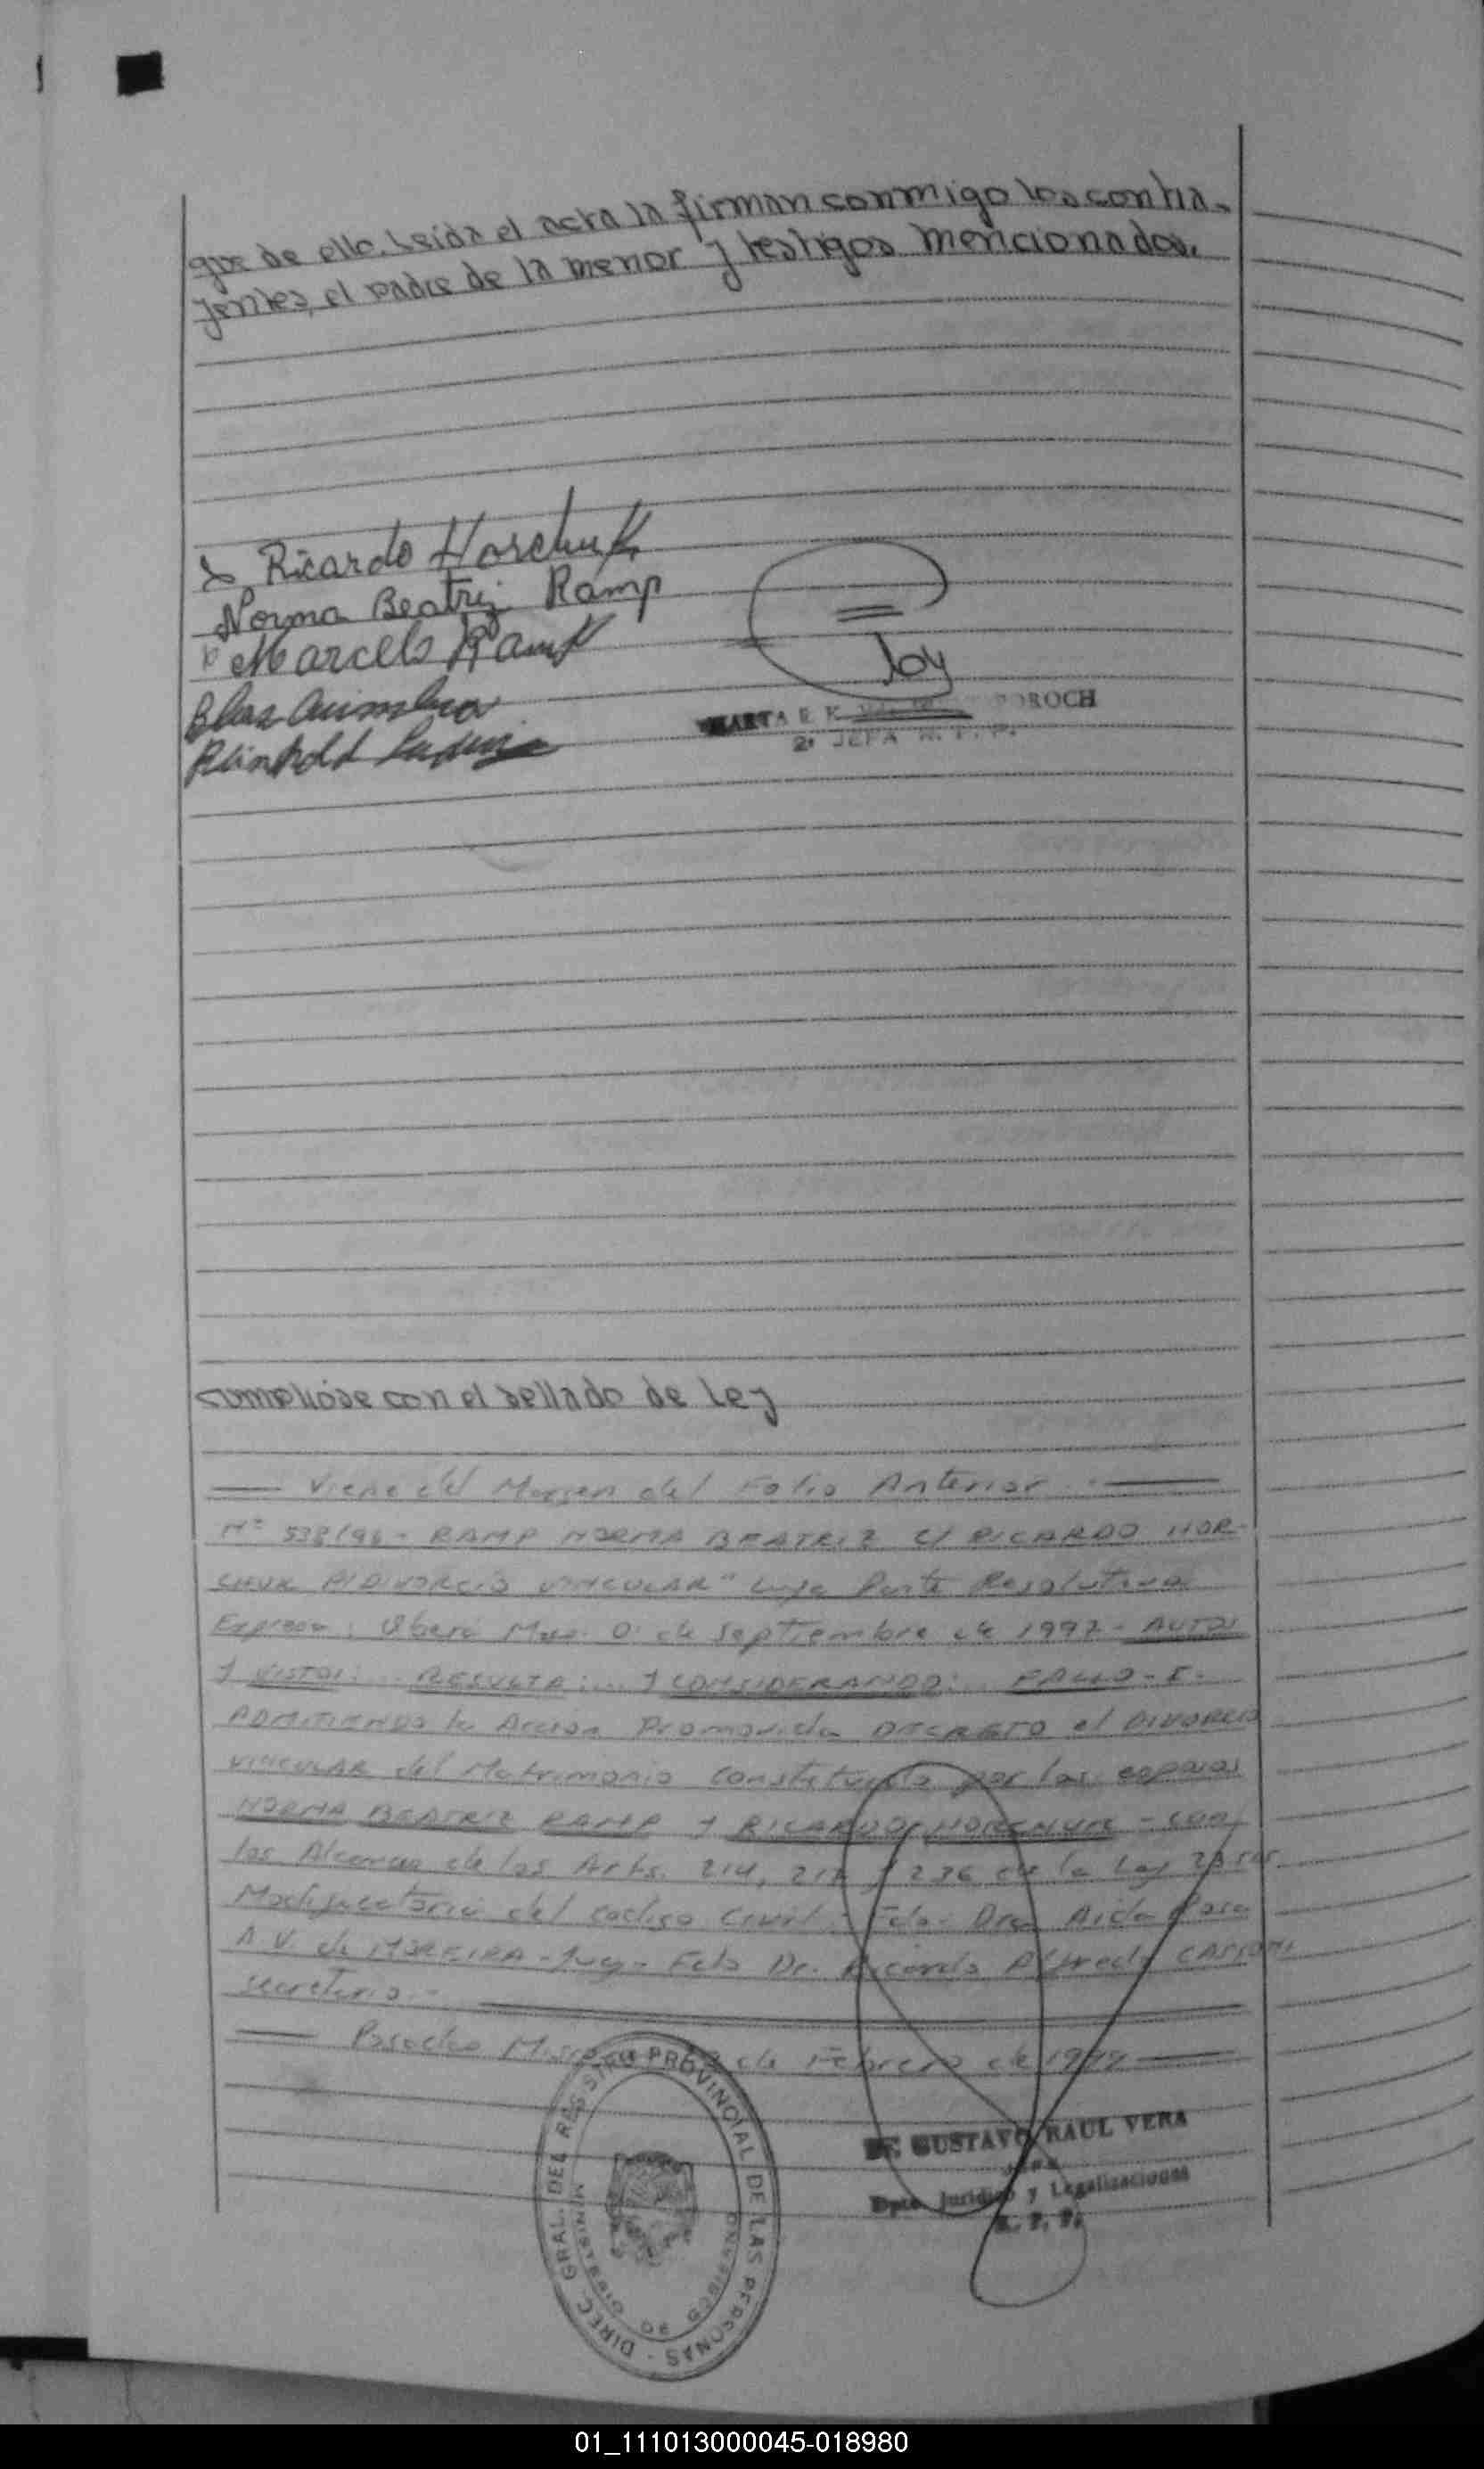 que de ello. Leída el acta la firman conmigo los contra-
yentes, el padre de la menor y testigos mencionados.
Ricardo Horchuk
Norma Beatriz Ramp
Marcelo Ramp
Reinhold
MARTA E. K. OROCH
2ª JEFA R. P. P.
Cumplióse con el sellado de Ley
Viene del Margen del Folio Anterior
Nº 538/96 - RAMP NORMA BEATRIZ C/ RICARDO HOR-
CHUK P/DIVORCIO VINCULAR" cuya Parte Resolutiva
Expresa: Oberá Mnes. de Septiembre de 1997 - AUTOS
Y VISTOS:... RESULTA:... Y CONSIDERANDO:... FALLO - I -
ADMITIENDO la Acción Promovida DECRETO el DIVORCIO
VINCULAR del Matrimonio constituido por los esposos
NORMA BEATRIZ RAMP Y RICARDO HORCHUK - con
los Alcances de los Arts. 214, 217 y 236 de la Ley 23515
Modificatoria del Codigo Civil. - Fdo. Dra Aida Rosa
A V. de MOREIRA - Juez - Fdo Dr. Ricardo Alfredo CASSONI
secretario. -
Posadas de Febrero de
DIREC. GRAL. DEL REGISTRO PROVINCIAL DE LAS PERSONAS
MINISTERIO DE GOBIERNO
GUSTAVO RAUL VERA
JEFE
Dpto. Jurídico y Legalizaciones
R. P. P.
01_111013000045-018980